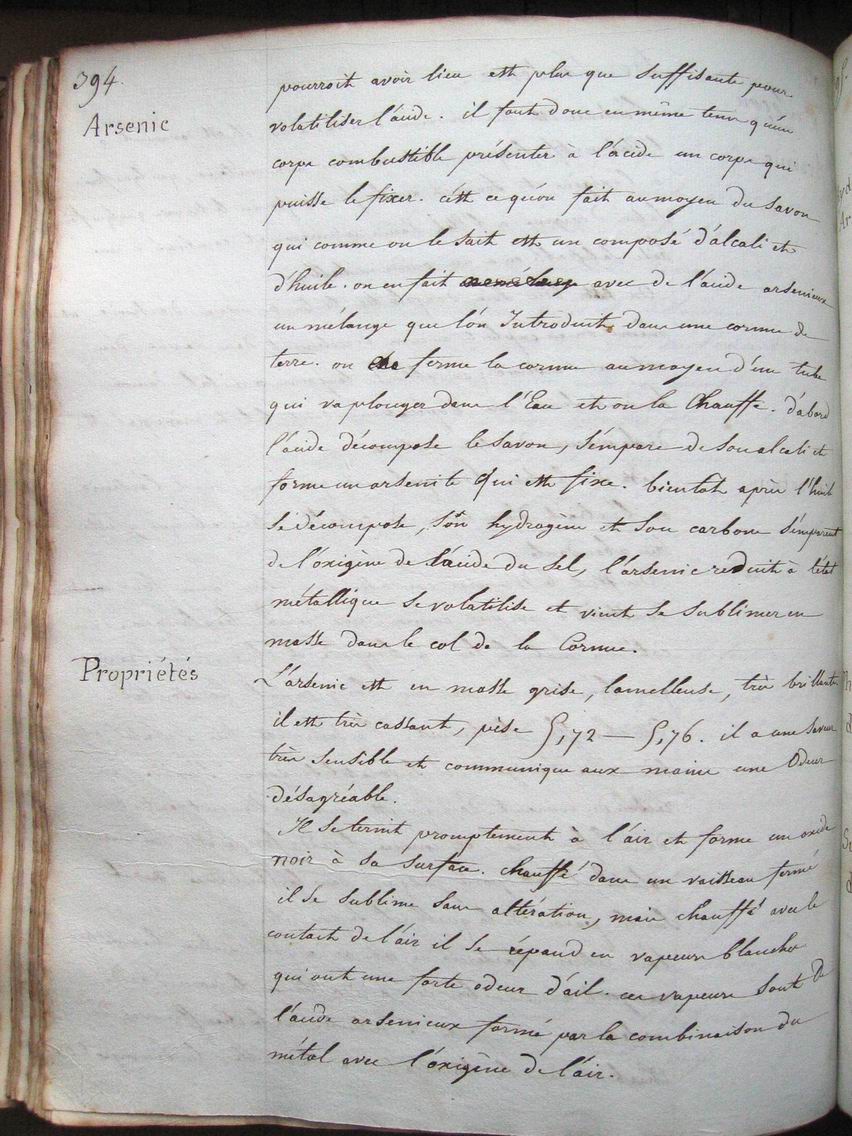 394.
Arsenic
pourroit avoir lieu est plus que suffisante pour
volatiliser l'acide. il faut donc en même tems qu'un
corps combustible présenter à l'acide un corps qui
puisse le fixer. c'est ce qu'on fait au moyen du savon
qui comme on le sait est un composé d'alcali et
d'huile. on en fait avec de l'acide arsenieux
un mélange que l'on Introduit dans une cornue de
terre. on ferme la cornue au moyen d'un tube
qui va plonger dans l'Eau et on la Chauffe. d'abord
l'acide décompose le savon, s'empare de son alcali et
forme un arsenite qui est fixe. bientot après l'huile
se décompose, son hydrogene et son carbone s'emparent
de l'óxigène de l'acide du sel, l'arsenic reduit à l'état
métallique se volatilise et vient se sublimer en
masse dans le col de la Cornue.
Propriétés
L'arsenic est en masse grise, lamelleuse, très brillante
il est très cassant, pèse 5,72 — 5,76. il a une saveur
très sensible et communique aux mains une Odeur
désagréable.
Il se ternit promptement à l'air et forme un oxide
noir à sa surface. chauffé dans un vaisseau fermé
il se sublime sans altération, mais chauffé avec le
contact de l'air il se répand en vapeurs blanches
qui ont une forte odeur d'ail. ces vapeurs sont de
l'acide arsenieux formé par la combinaison du
métal avec l'óxigène de l'air.